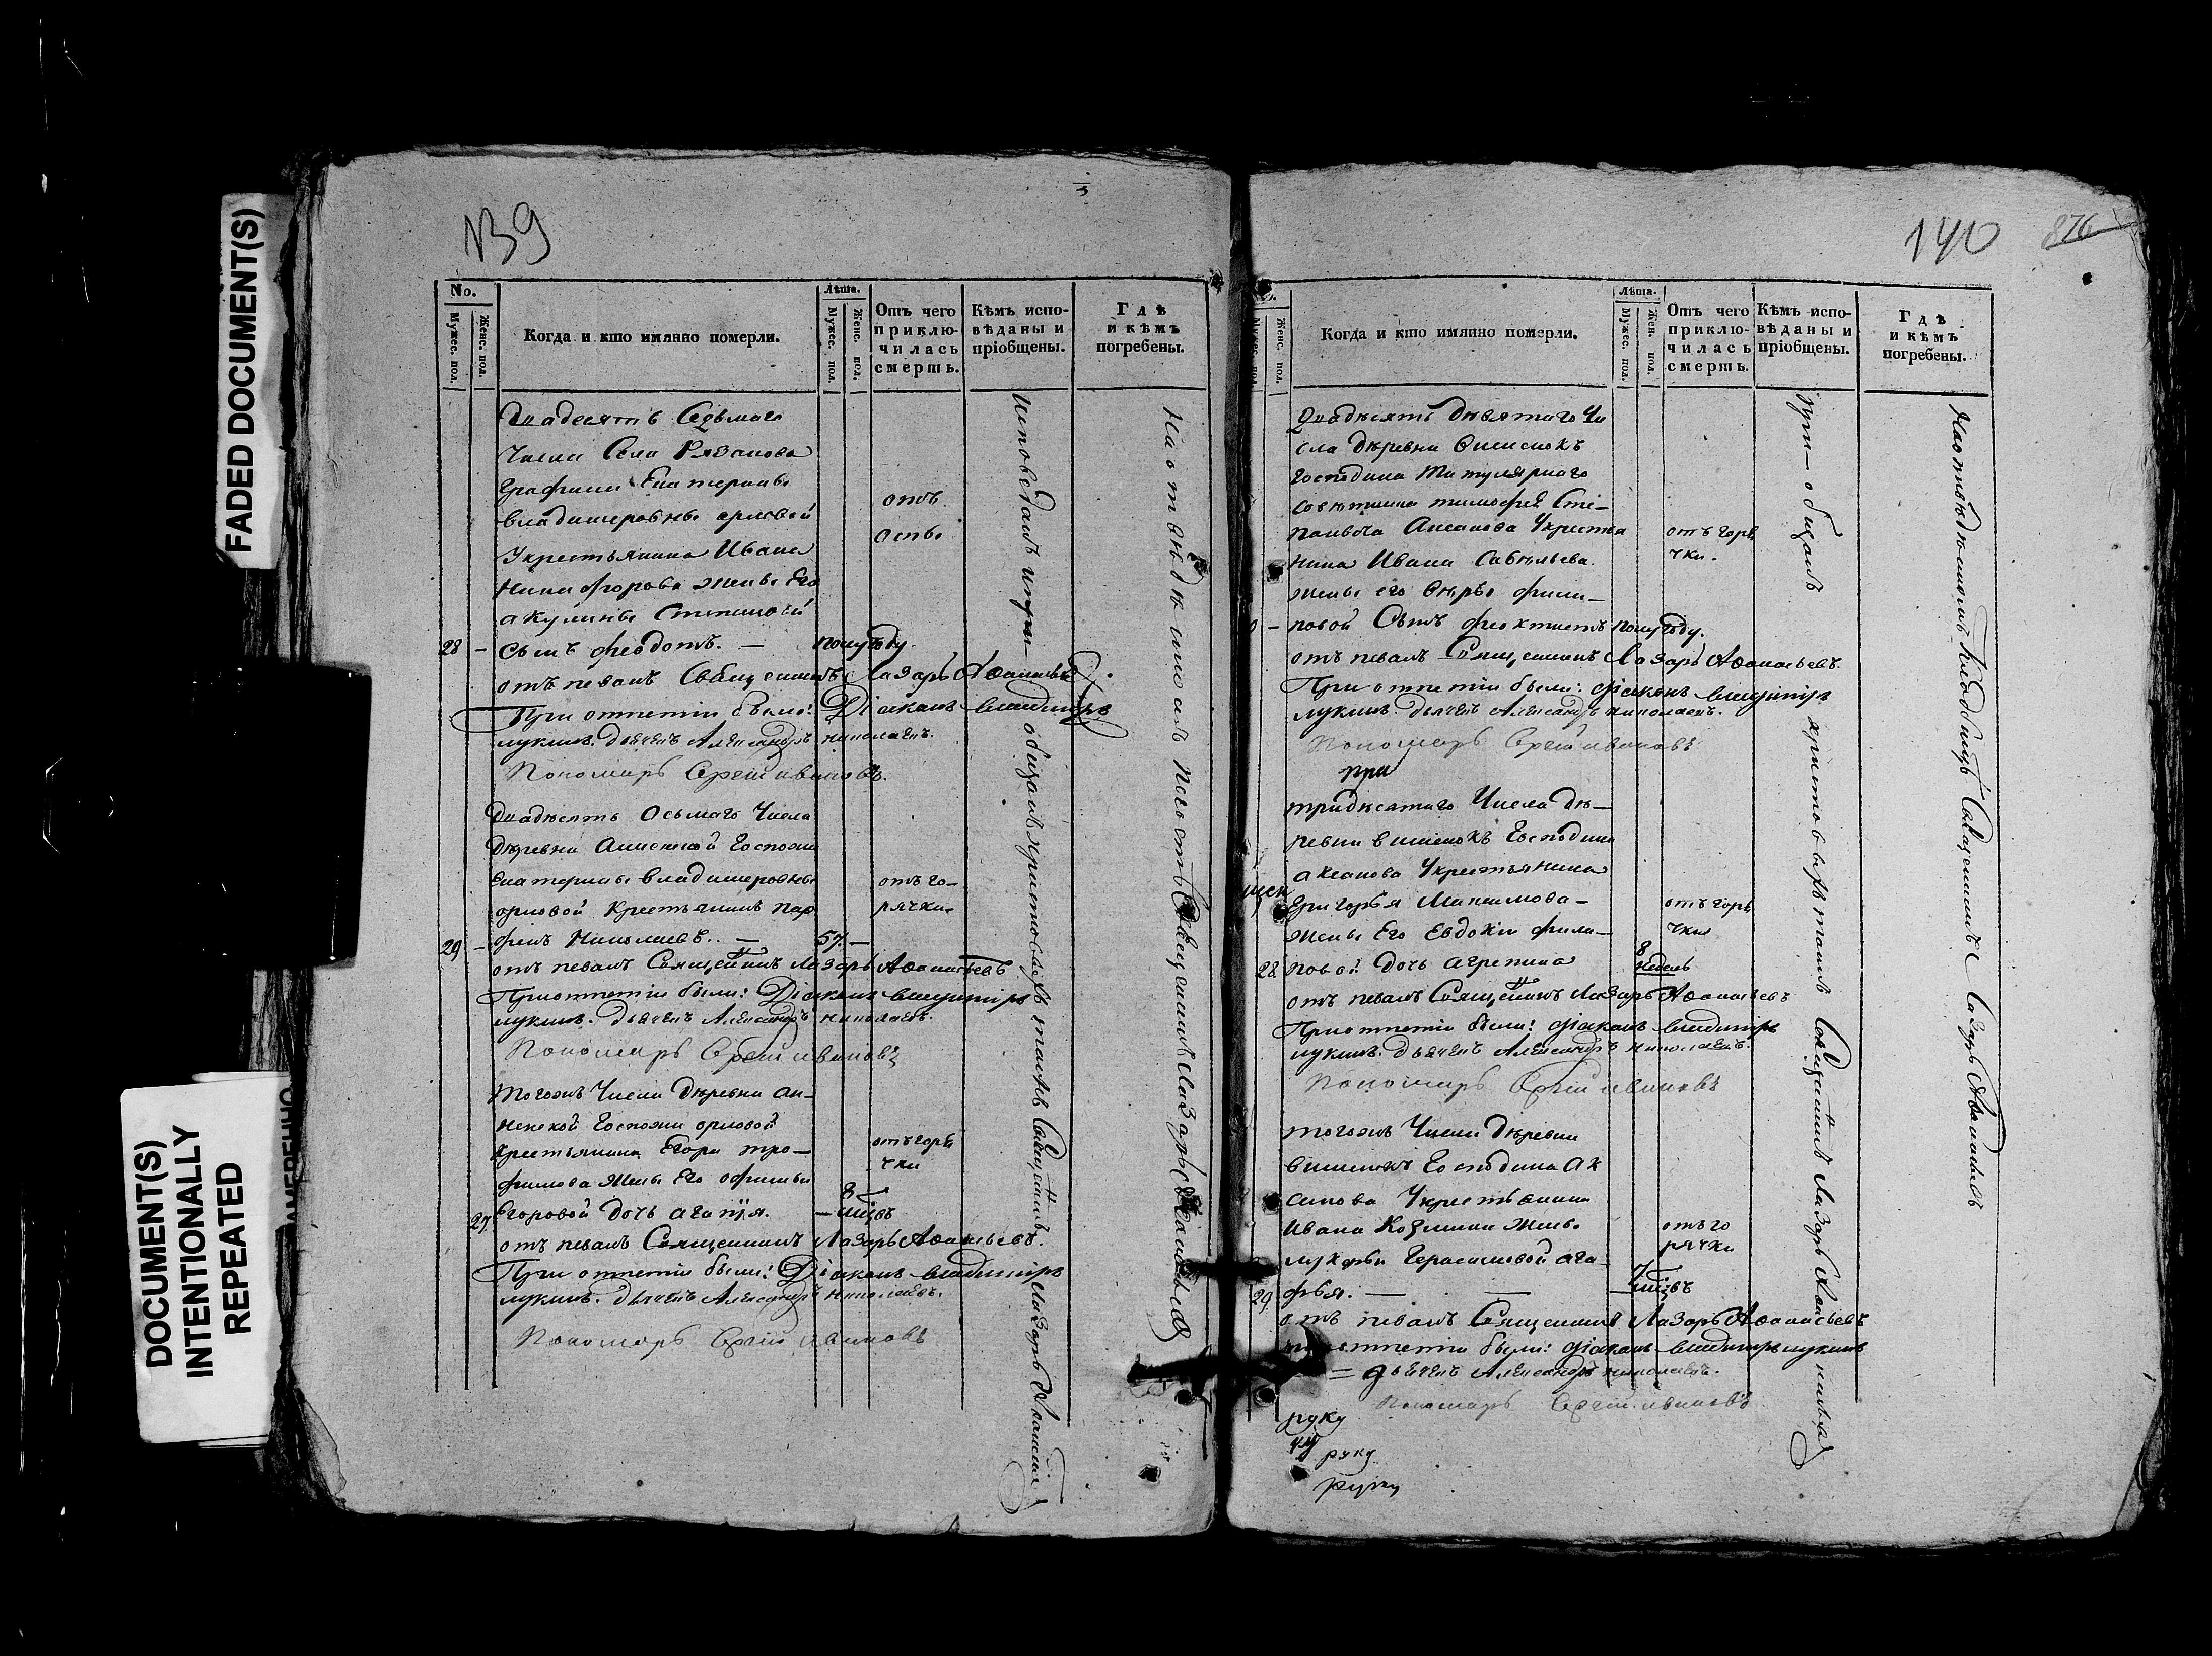 FADED DOCUMENT(S)
DOCUMENT(S)
INTENTIONALLY
REPEATED
139
No.
Мужес. пол.
Женс. пол.
Когда и кто имянно померли.
Лѣта.
Мужес. пол.
Женс. пол.
Отъ чего
приклю-
чилась
смерть.
Кѣмъ испо-
вѣданы и
пріобщены.
Гдѣ
и кѣмъ
погребены.
Двадесять Седьмаго
Числа Села Рязанова
Графини Екатерины
владимеровны орловой
Укрестьянина Ивана
Никифорова жены Его
акулины Степановой
отъ
оспы
28 — Сынъ феодотъ. — полугоду
отъ певалъ Священникъ Лазарь Афанасьевъ
При отпетіи были: Діаконъ владимиръ
лукинъ. дьячекъ Александръ николаевъ.
Пономарь Сергей ивановъ.
Двадесять Осьмаго Числа
деревни Аннинской Госпожи
Екатерины владимеровны
орловой Крестьянинъ пар
отъ го-
рячки
29 — фенъ Николаевъ. — 57. —
отъ певалъ Священникъ Лазарь Афанасьевъ
При отпетіи были: Діаконъ владимиръ
лукинъ. дьячекъ Александръ николаевъ.
Пономарь Сергей ивановъ
Тогожъ Числа деревни ан-
ненской Госпожи орловой
Крестьянина Егора тро-
фимова жены Его офимьи
отъ горя
чки
27 Егоровой дочь агапія. — 8
отъ певалъ Священникъ Лазарь Афанасьевъ.
При отпетіи были: Діаконъ владимиръ
лукинъ. дьячекъ Александръ николаевъ.
Пономарь Сергей ивановъ
Священникъ Лазарь Афанасьевъ
140
876
Мужес. пол.
Женс. пол.
Когда и кто имянно померли.
Лѣта.
Мужес. пол.
Жен. пол.
Отъ чего
приклю-
чилась
смерть.
Кѣмъ испо-
вѣданы и
пріобщены.
Гдѣ
и кѣмъ
погребены.
Двадесять девятаго Чи
сла деревни
Господина Титулярнаго
советника тимофея Сте-
пановича Аксакова Укрестья
нина Ивана Савельева
жены его фили-
отъ горя
чки.
повой Сынъ феоктистъ полугоду.
отъ певалъ Священникъ Лазарь Афанасьевъ
При отпетіи были: діаконъ владимиръ
лукинъ. дьячекъ Александръ николаевъ.
Пономарь Сергей ивановъ
при
тридесятаго Числа де-
ревни вишенокъ Господина
аксакова Укрестьянина
Григорья Максимова-
жены Его Евдокіи фили-
отъ горя
чки
28 повой дочь агрепина 8 недель
отъ певалъ Священникъ Лазарь Афанасьевъ
При отпетіи были: діаконъ владимиръ
лукинъ. дьячекъ Александръ николаевъ.
Пономарь Сергей ивановъ
тогожъ Числа деревни
вишенокъ Господина Ак
сакова Укрестьянина
Ивана Козмина жены
лукерьи Герасимовой ага-
отъ го
рячки
29 фья. —
отъ певалъ Священникъ Лазарь Афанасьевъ
при отпетіи были: діаконъ владимиръ лукинъ
= дьячекъ Александръ николаевъ.
Пономарь Сергей ивановъ
руку
ку
руку
руку
Священникъ Лазарь Афанасьевъ